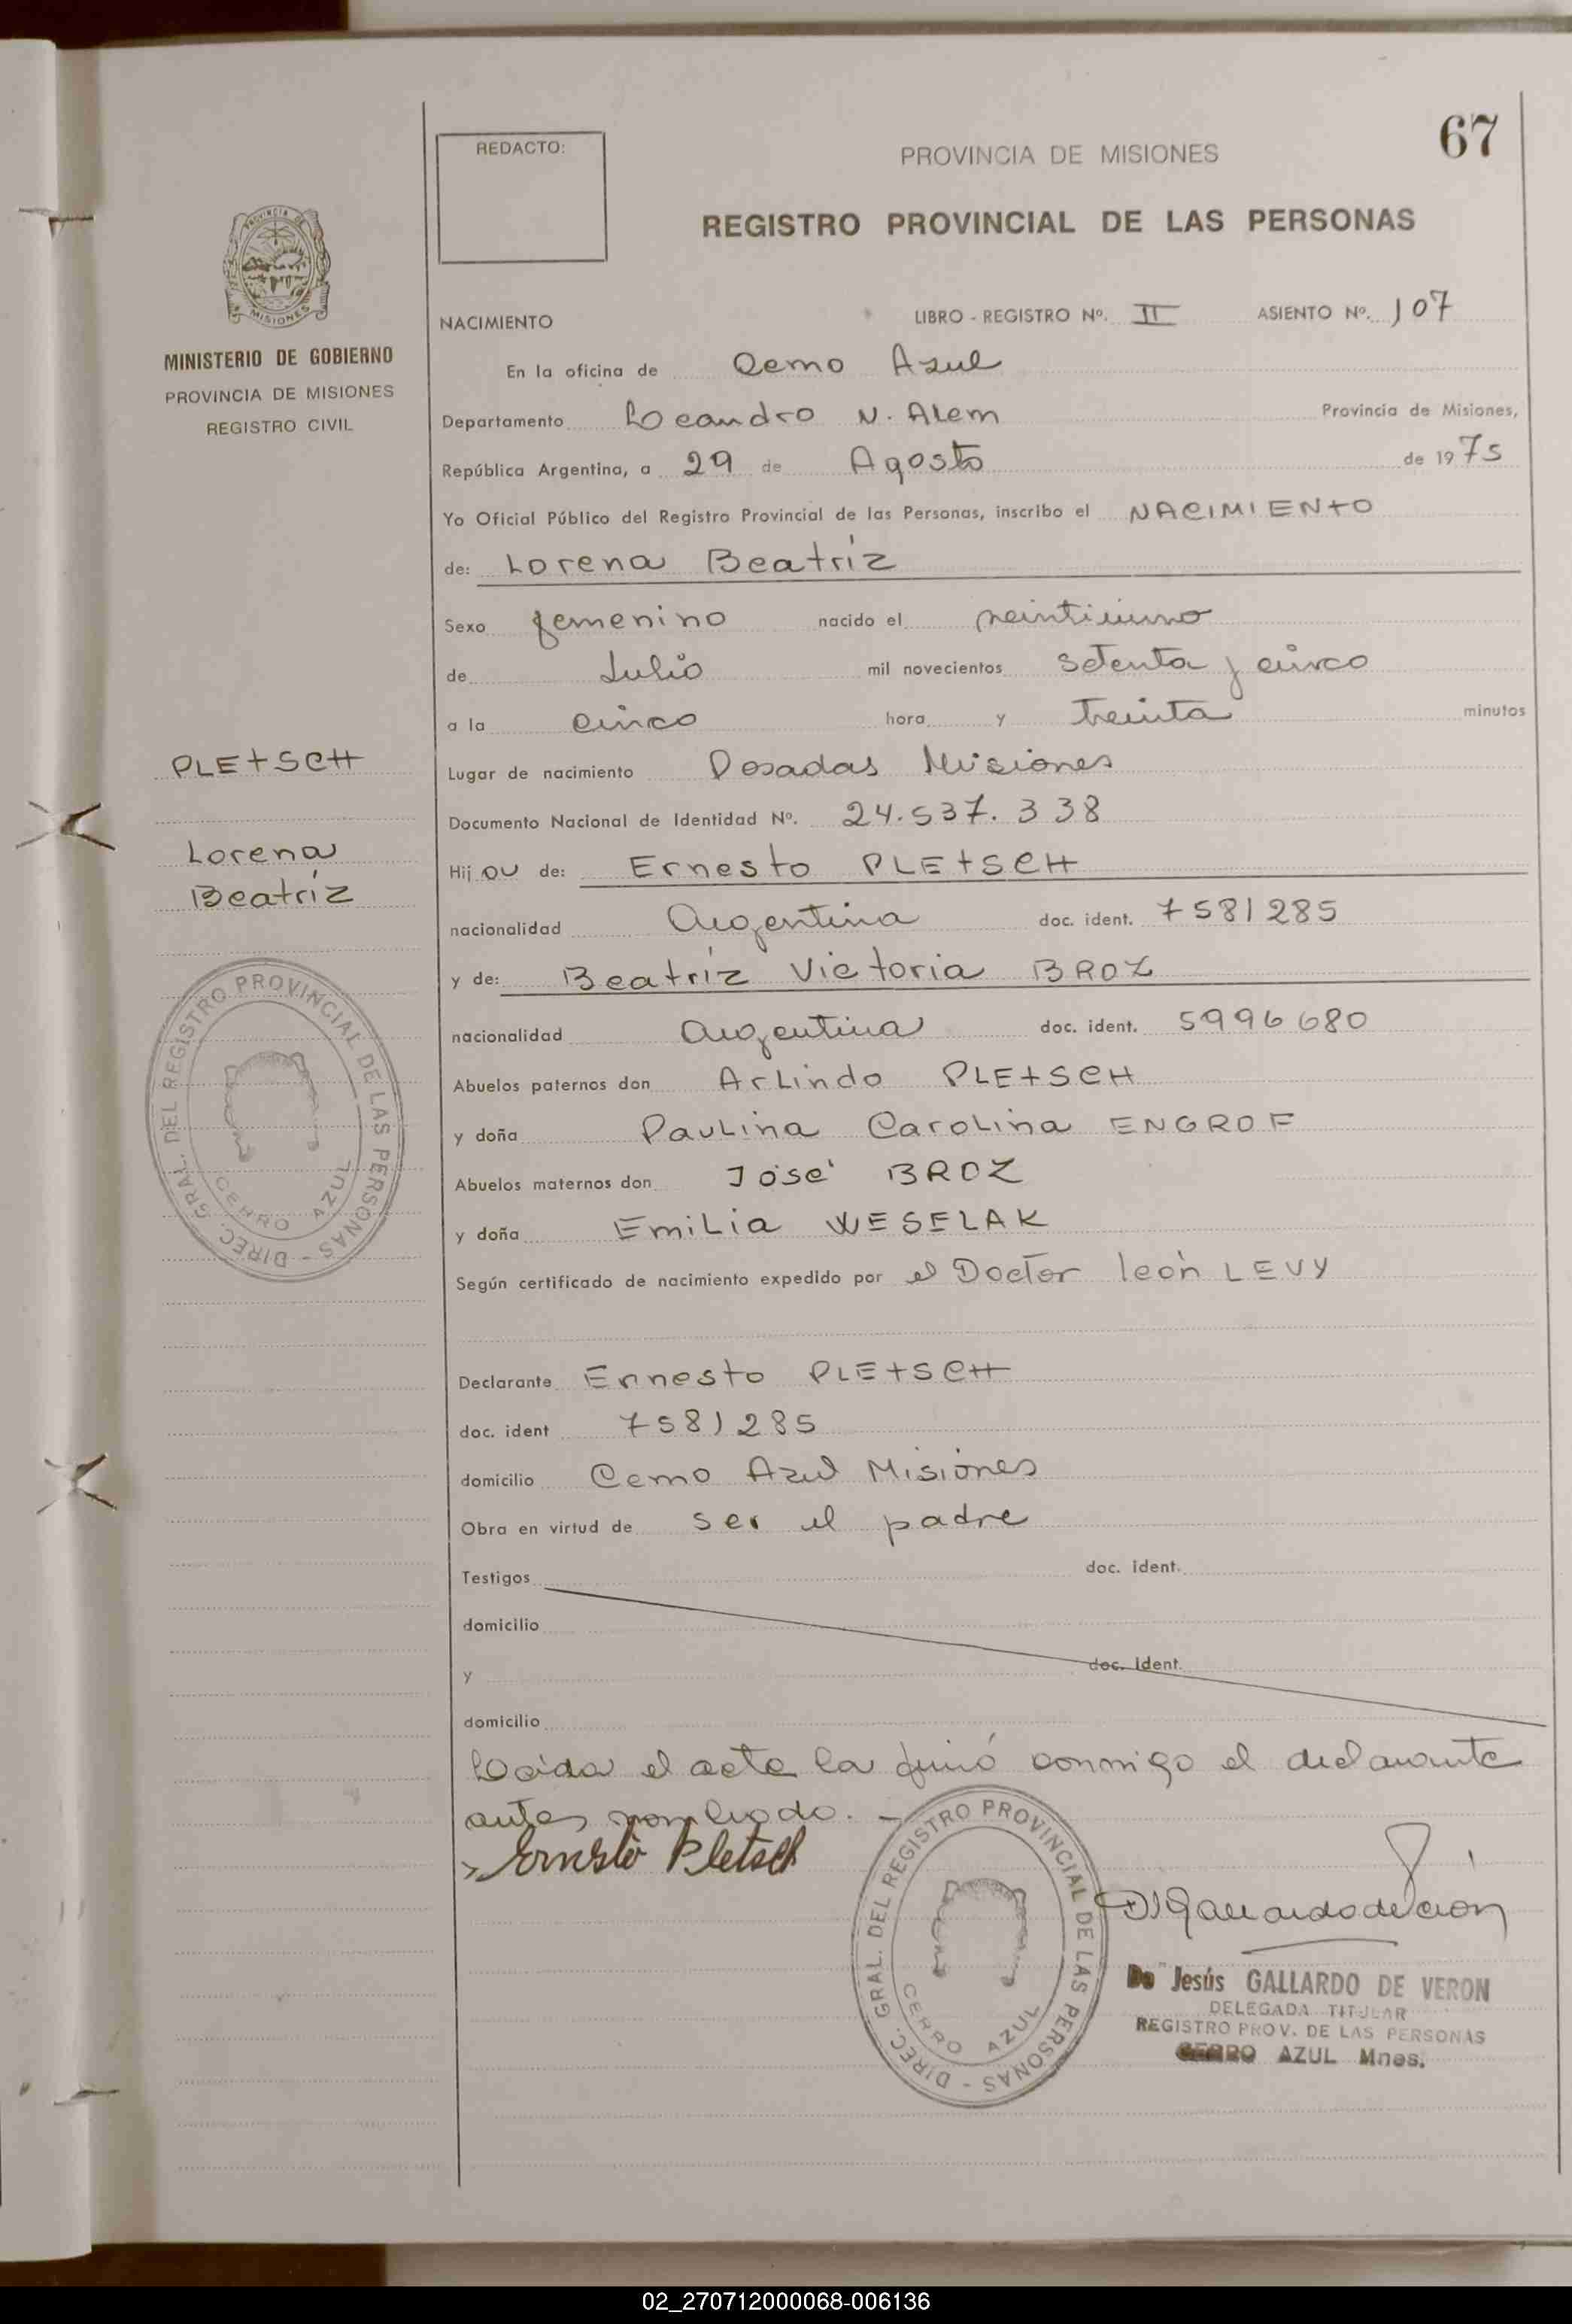 67
REDACTO:
PROVINCIA DE MISIONES
REGISTRO PROVINCIAL DE LAS PERSONAS
PROVINCIA DE
MISIONES
MINISTERIO DE GOBIERNO
PROVINCIA DE MISIONES
REGISTRO CIVIL
NACIMIENTO LIBRO - REGISTRO Nº. II ASIENTO Nº. 107
En la oficina de Cerro Azul
Departamento Leandro N. Alem Provincia de Misiones,
República Argentina, a 29 de Agosto de 1975
Yo Oficial Público del Registro Provincial de las Personas, inscribo el NACIMIENTO
de: Lorena Beatriz
Sexo femenino nacido el veintiuno
de Julio mil novecientos setenta y cinco
a la cinco hora y treinta minutos
Lugar de nacimiento Posadas Misiones
Documento Nacional de Identidad Nº. 24.537.338
Hij de: Ernesto PLETSCH
nacionalidad Argentina doc. ident. 7581285
y de: Beatriz Victoria BROZ
nacionalidad Argentina doc. ident. 5996680
Abuelos paternos don Arlindo PLETSCH
y doña Paulina Carolina ENGROF
Abuelos maternos don José BROZ
y doña Emilia WESELAK
Según certificado de nacimiento expedido por el Doctor león LEVY
Declarante Ernesto PLETSCH
doc. ident 7581285
domicilio Cerro Azul Misiones
Obra en virtud de ser el padre
Testigos doc. ident.
domicilio
y doc. ident.
domicilio
Leída el acta la firmó conmigo el declarante
antes nombrado. -
Ernesto Pletsch
PLETSCH
Lorena
Beatriz
DIREC. GRAL. DEL REGISTRO PROVINCIAL DE LAS PERSONAS -
CERRO AZUL
DIREC. GRAL. DEL REGISTRO PROVINCIAL DE LAS PERSONAS -
CERRO AZUL
Jesús GALLARDO DE VERON
DELEGADA TITULAR
REGISTRO PROV. DE LAS PERSONAS
CERRO AZUL Mnes.
02_270712000068-006136